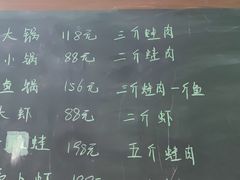 大锅 118元 三斤蛙肉
小锅 88元 二斤蛙肉
鱼锅 156元 三斤蛙肉一斤鱼
大虾 88元 二斤虾
蛙 198元 五斤蛙肉